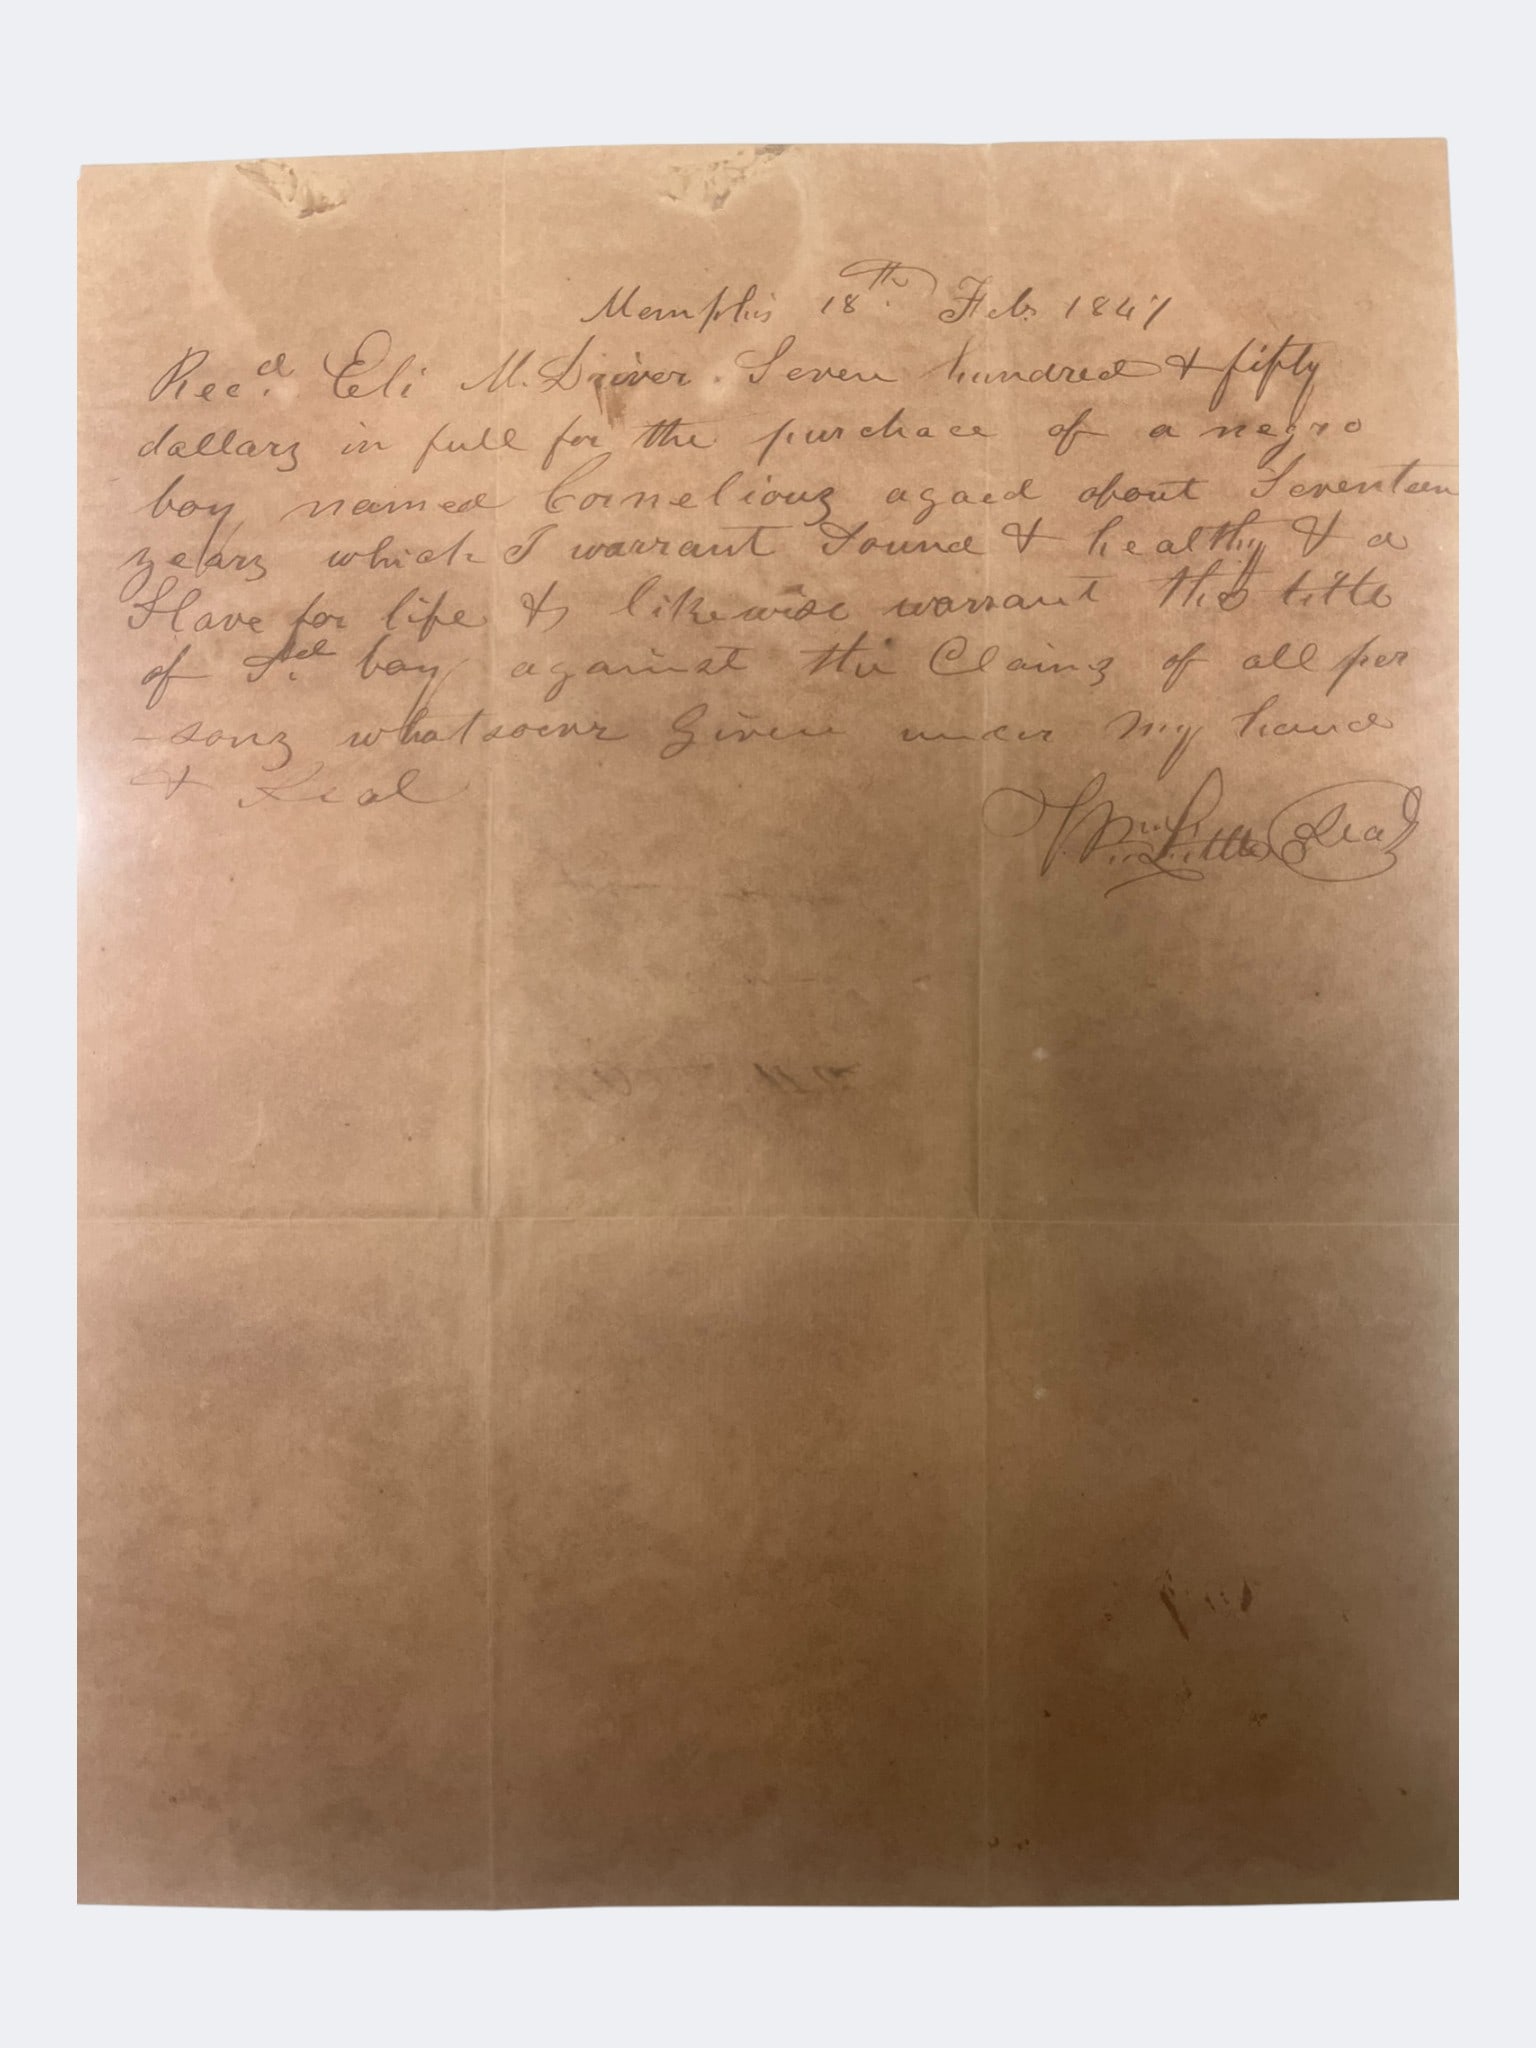 Memphis 18th Feb. 1847
Recd. Eli M. Driver. Seven hundred & fifty
dollars in full for the purchace of a negro
boy named Cornelious agaed about Seventeen
years which I warrant Sound & healthy & a
Slave for life & likewise warrant the title
of Sd. boy against the Claims of all per
-sons whatsoevr Given under my hand
& Seal
Little Seal